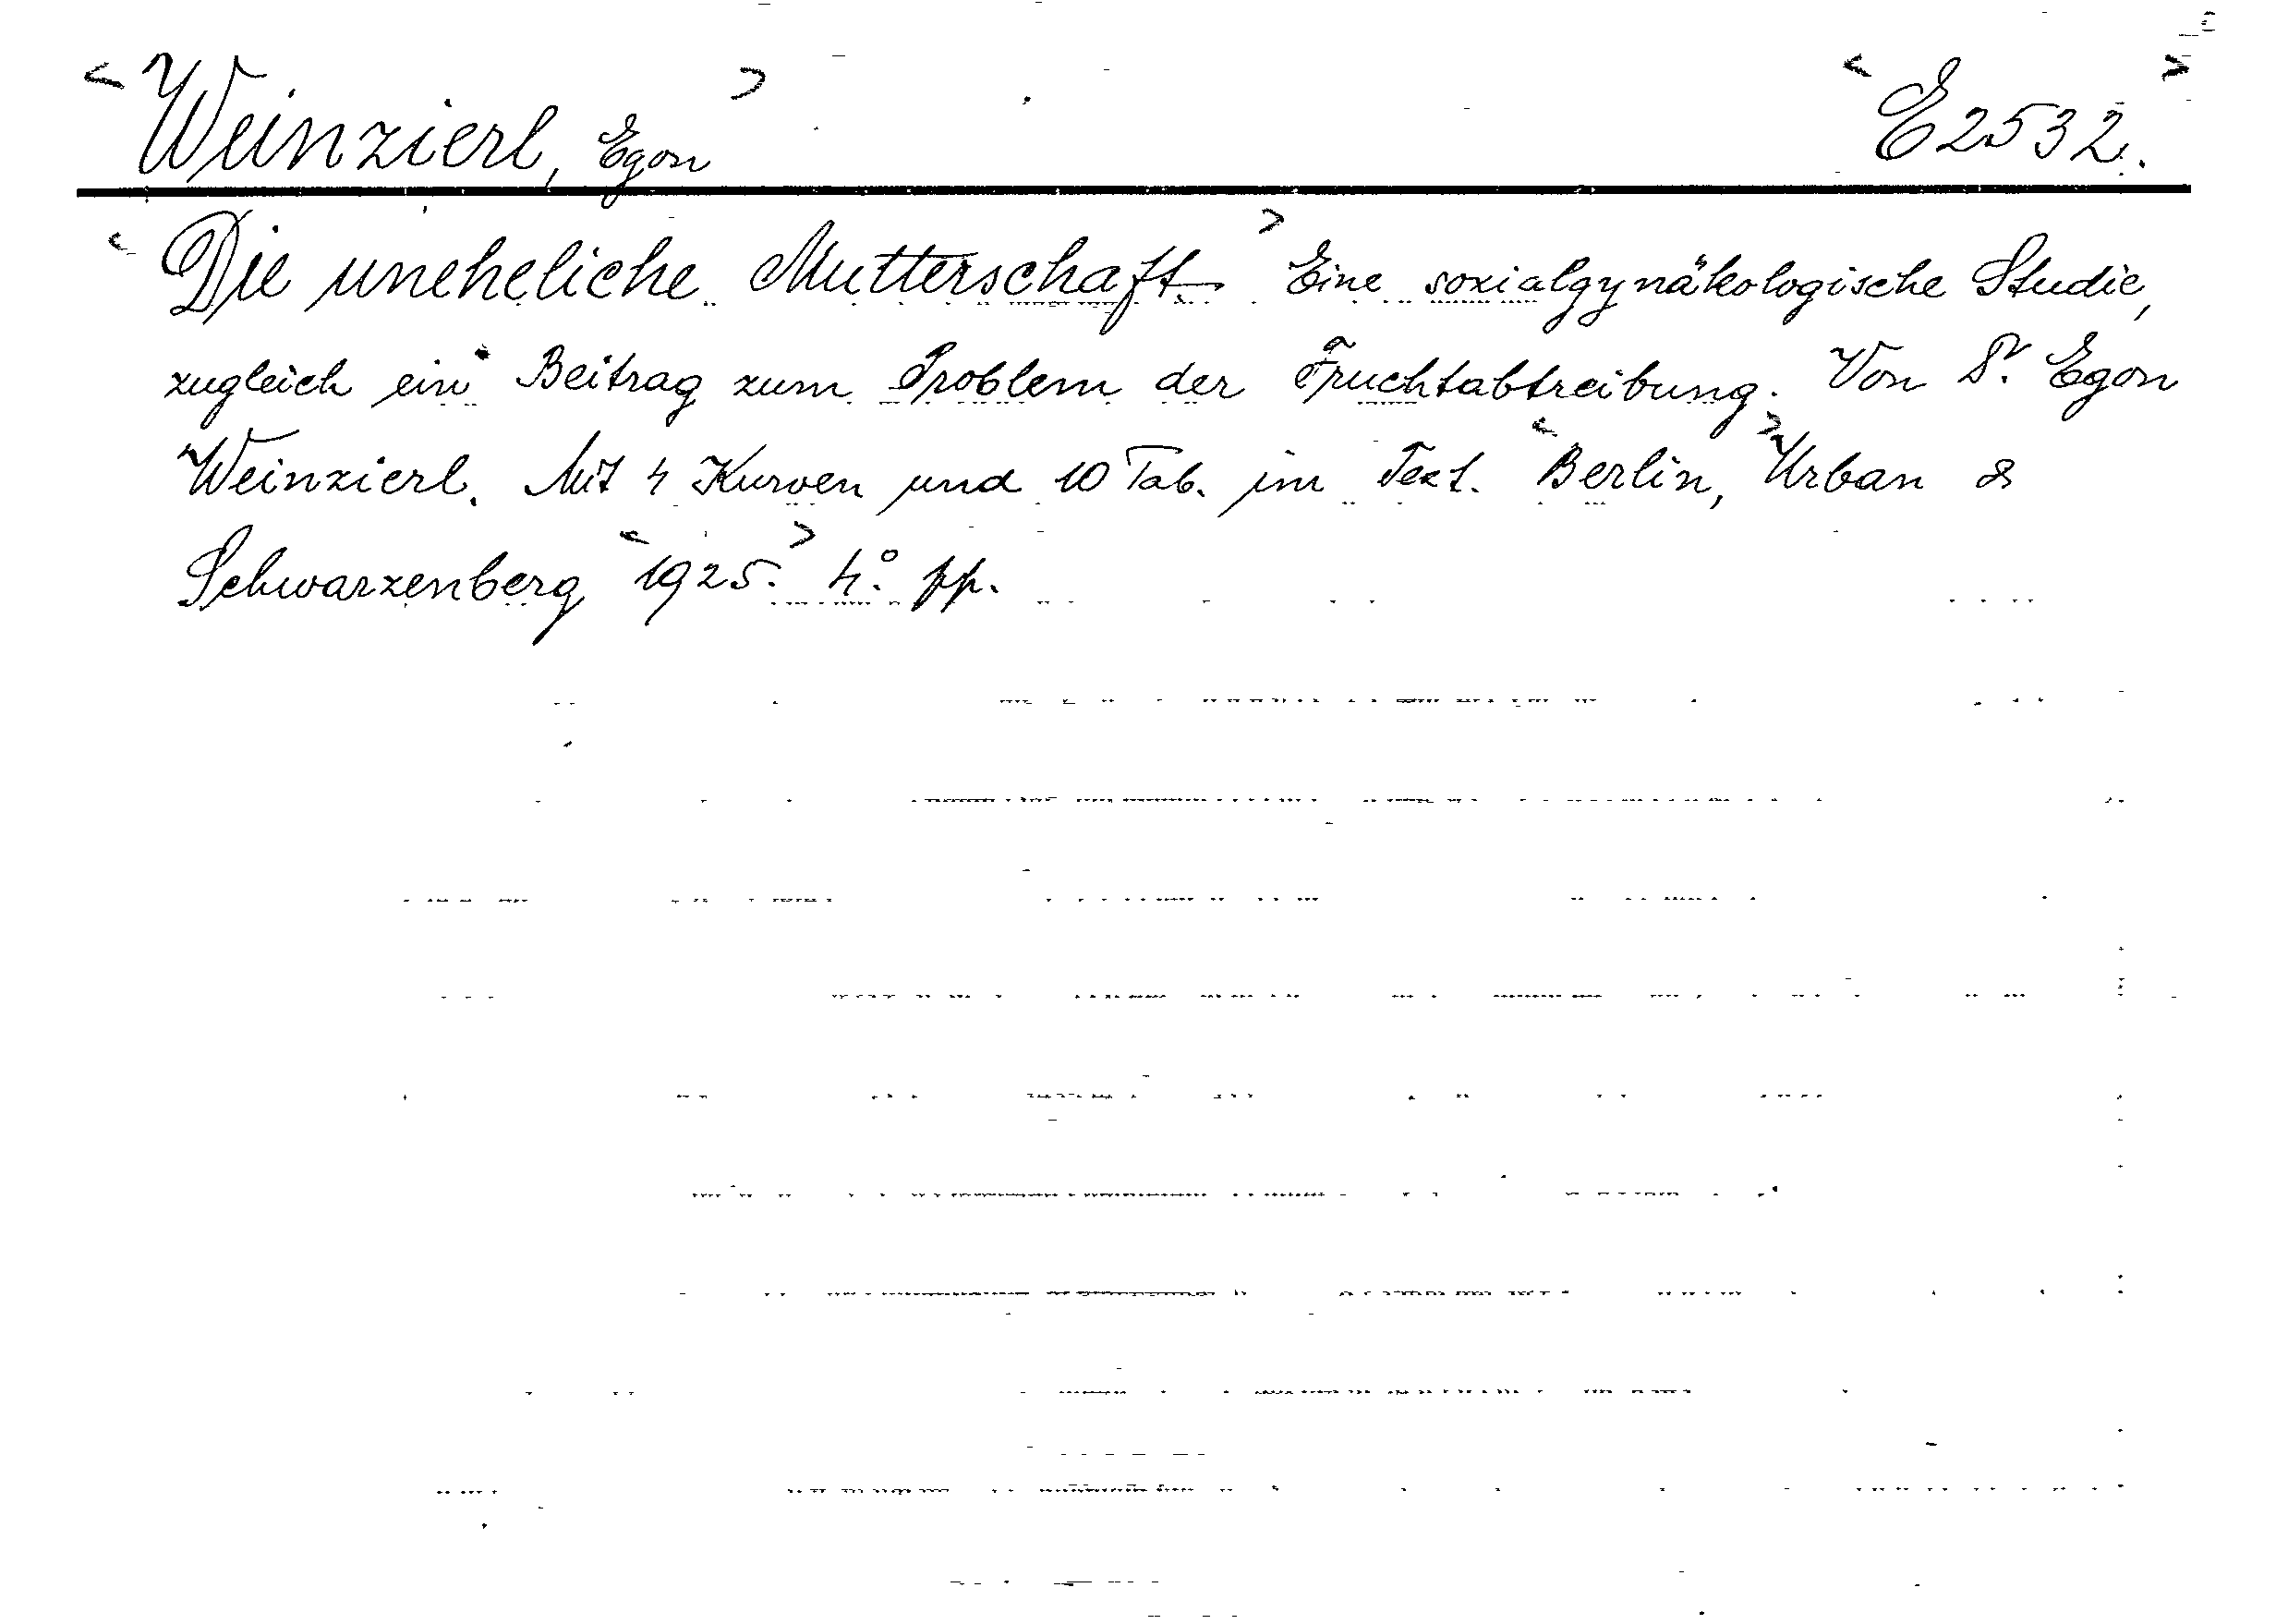 <Weinzierl, Egon> <E2532.>
<Die uneheliche Mutterschaft.> Eine sozialgynäkologische Studie,
zugleich ein Beitrag zum Problem der Fruchtabtreibung. Von Dr. Egon
Weinzierl. Mit 4 Kurven und 10 Tab. im Text. <Berlin,> Urban &
Schwarzenberg <1925.> 4°. pp.